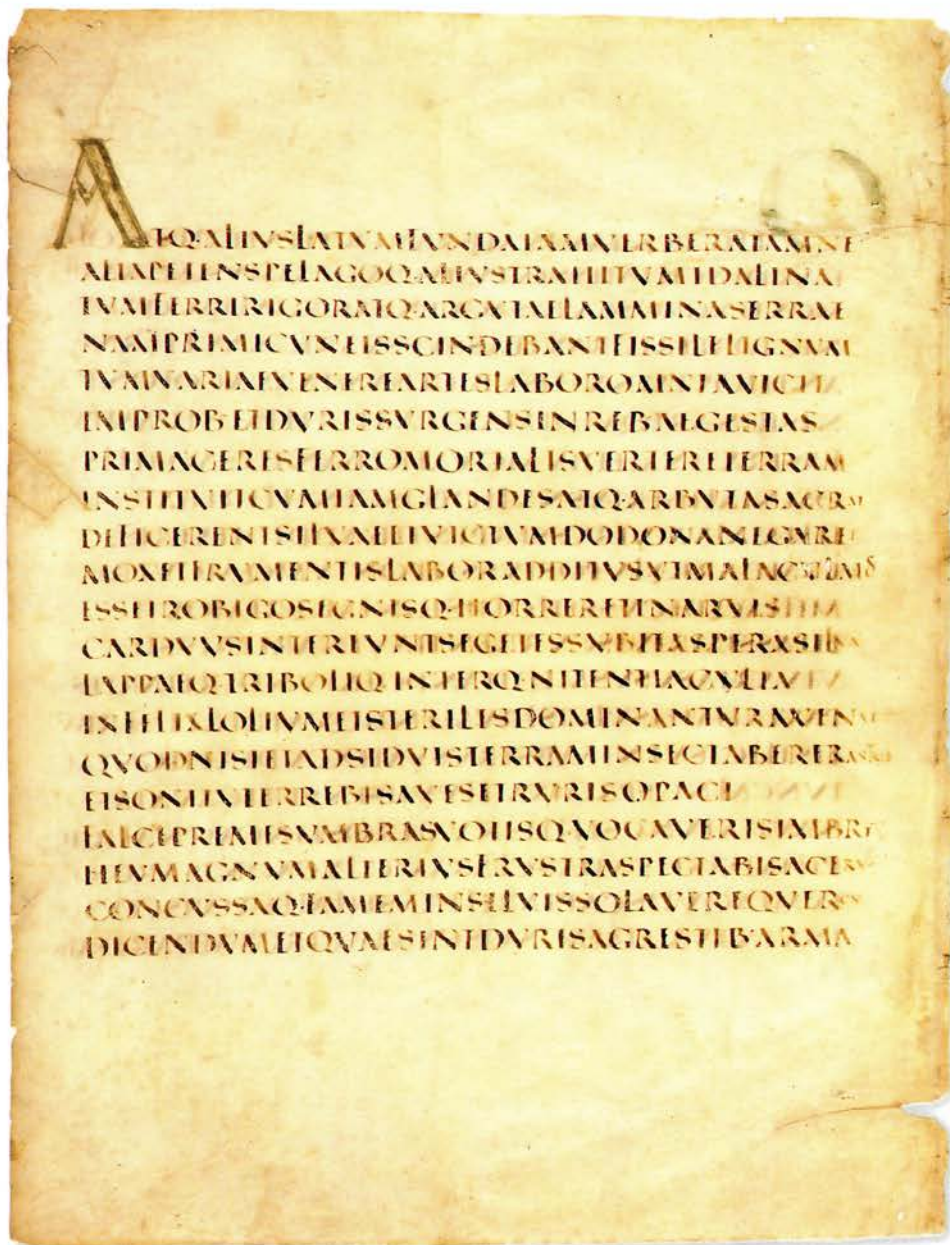 ATQ·ALIVSLATVMFVNDAIAMVERBERATAMNE
ALTAPETENSPELAGOQ·ALIVSTRAHITVMIDALINA
TVMFERRIRIGORATQ·ARGVTAELAMMINASERRAE
NAMPRIMICVNEISSCINDEBANTFISSILELIGNVM
TVMVARIAEVENEREARTESLABOROMNIAVICIT
IMPROB·ETDVRISSVRGENSINREB·AEGESTAS
PRIMACERESFERROMORTALISVERTERETERRAM
INSTITVITCVMIAMGLANDESATQ·ARBVTASACR
DEFICERENTSILVAEETVICTVMDODONANEGARE
MOXETFRVMENTISLABORADDITVSVTMALACVLMOS
ESSETROBIGOSEGNISQ·HORRERETINARVIS
CARDVVSINTEREVNTSEGETESSVBITASPERASILV
LAPPAEQ·TRIBOLIQ·INTERQ·NITENTIACVLTA
INFELIXLOLIVMETSTERILISDOMINANTVRAVEN
QVODNISIETADSIDVISTERRAMINSECTABERERA
ETSONITVTERREBISAVESETRVRISOPACI
FALCEPREMESVMBRASVOTISQVOCAVERISIMBRE
HEVMAGNVMALTERIVSFRVSTRASPECTABISACE
CONCVSSAQ·FAMEMINSILVISSOLAVEREQVER
DICENDVMETQVAESINTDVRISAGRESTIB·ARMA